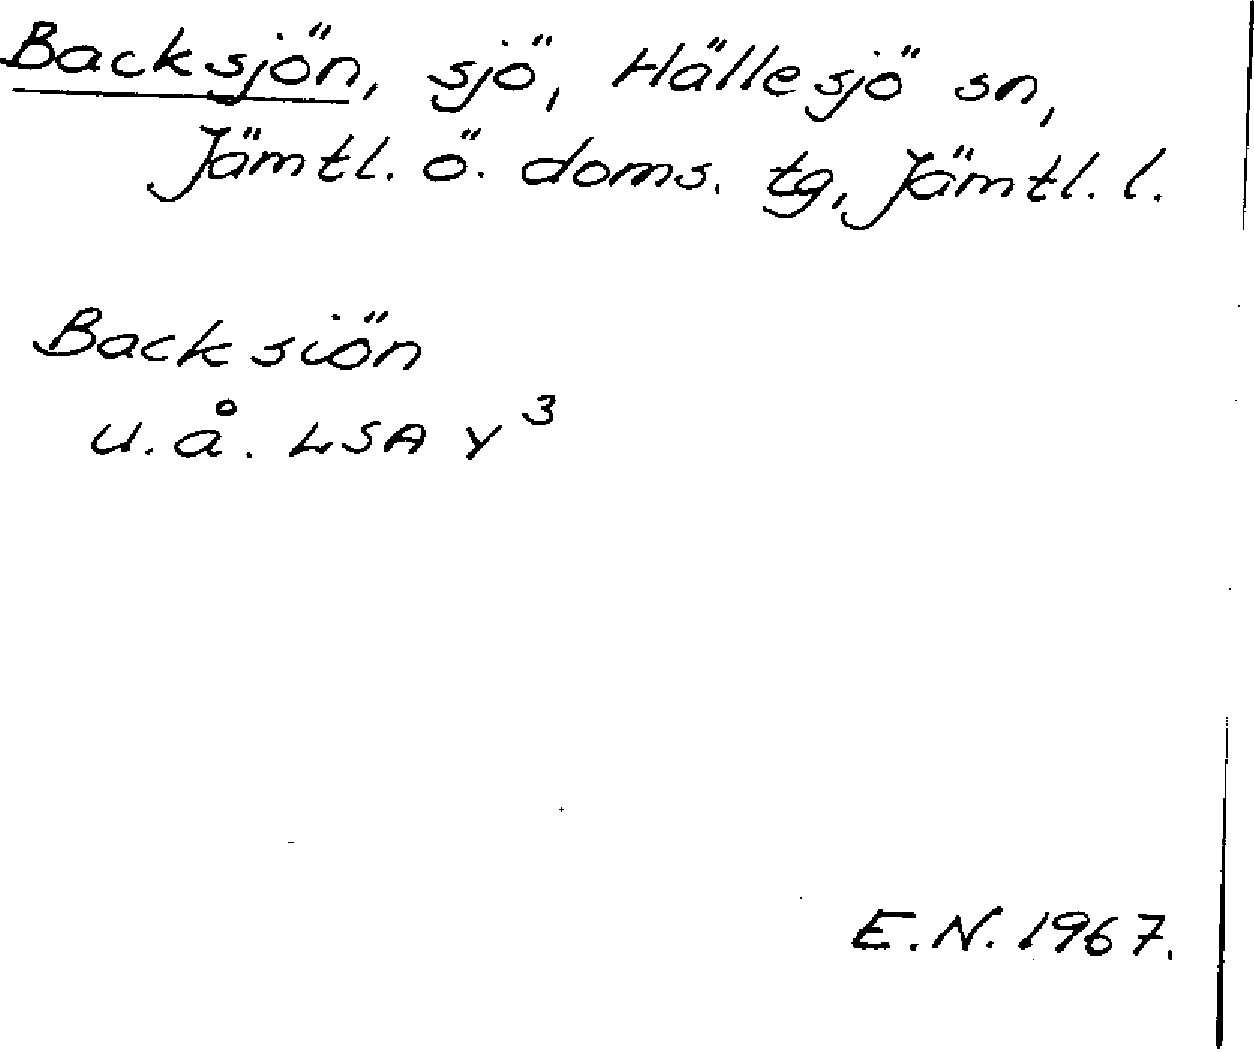 Backsjön, sjö, Hällesjö sn,
Jämtl. ö. doms. tg, Jämtl. l.
Backsiön
u. å. LSA Y 3
E. N. 1967.